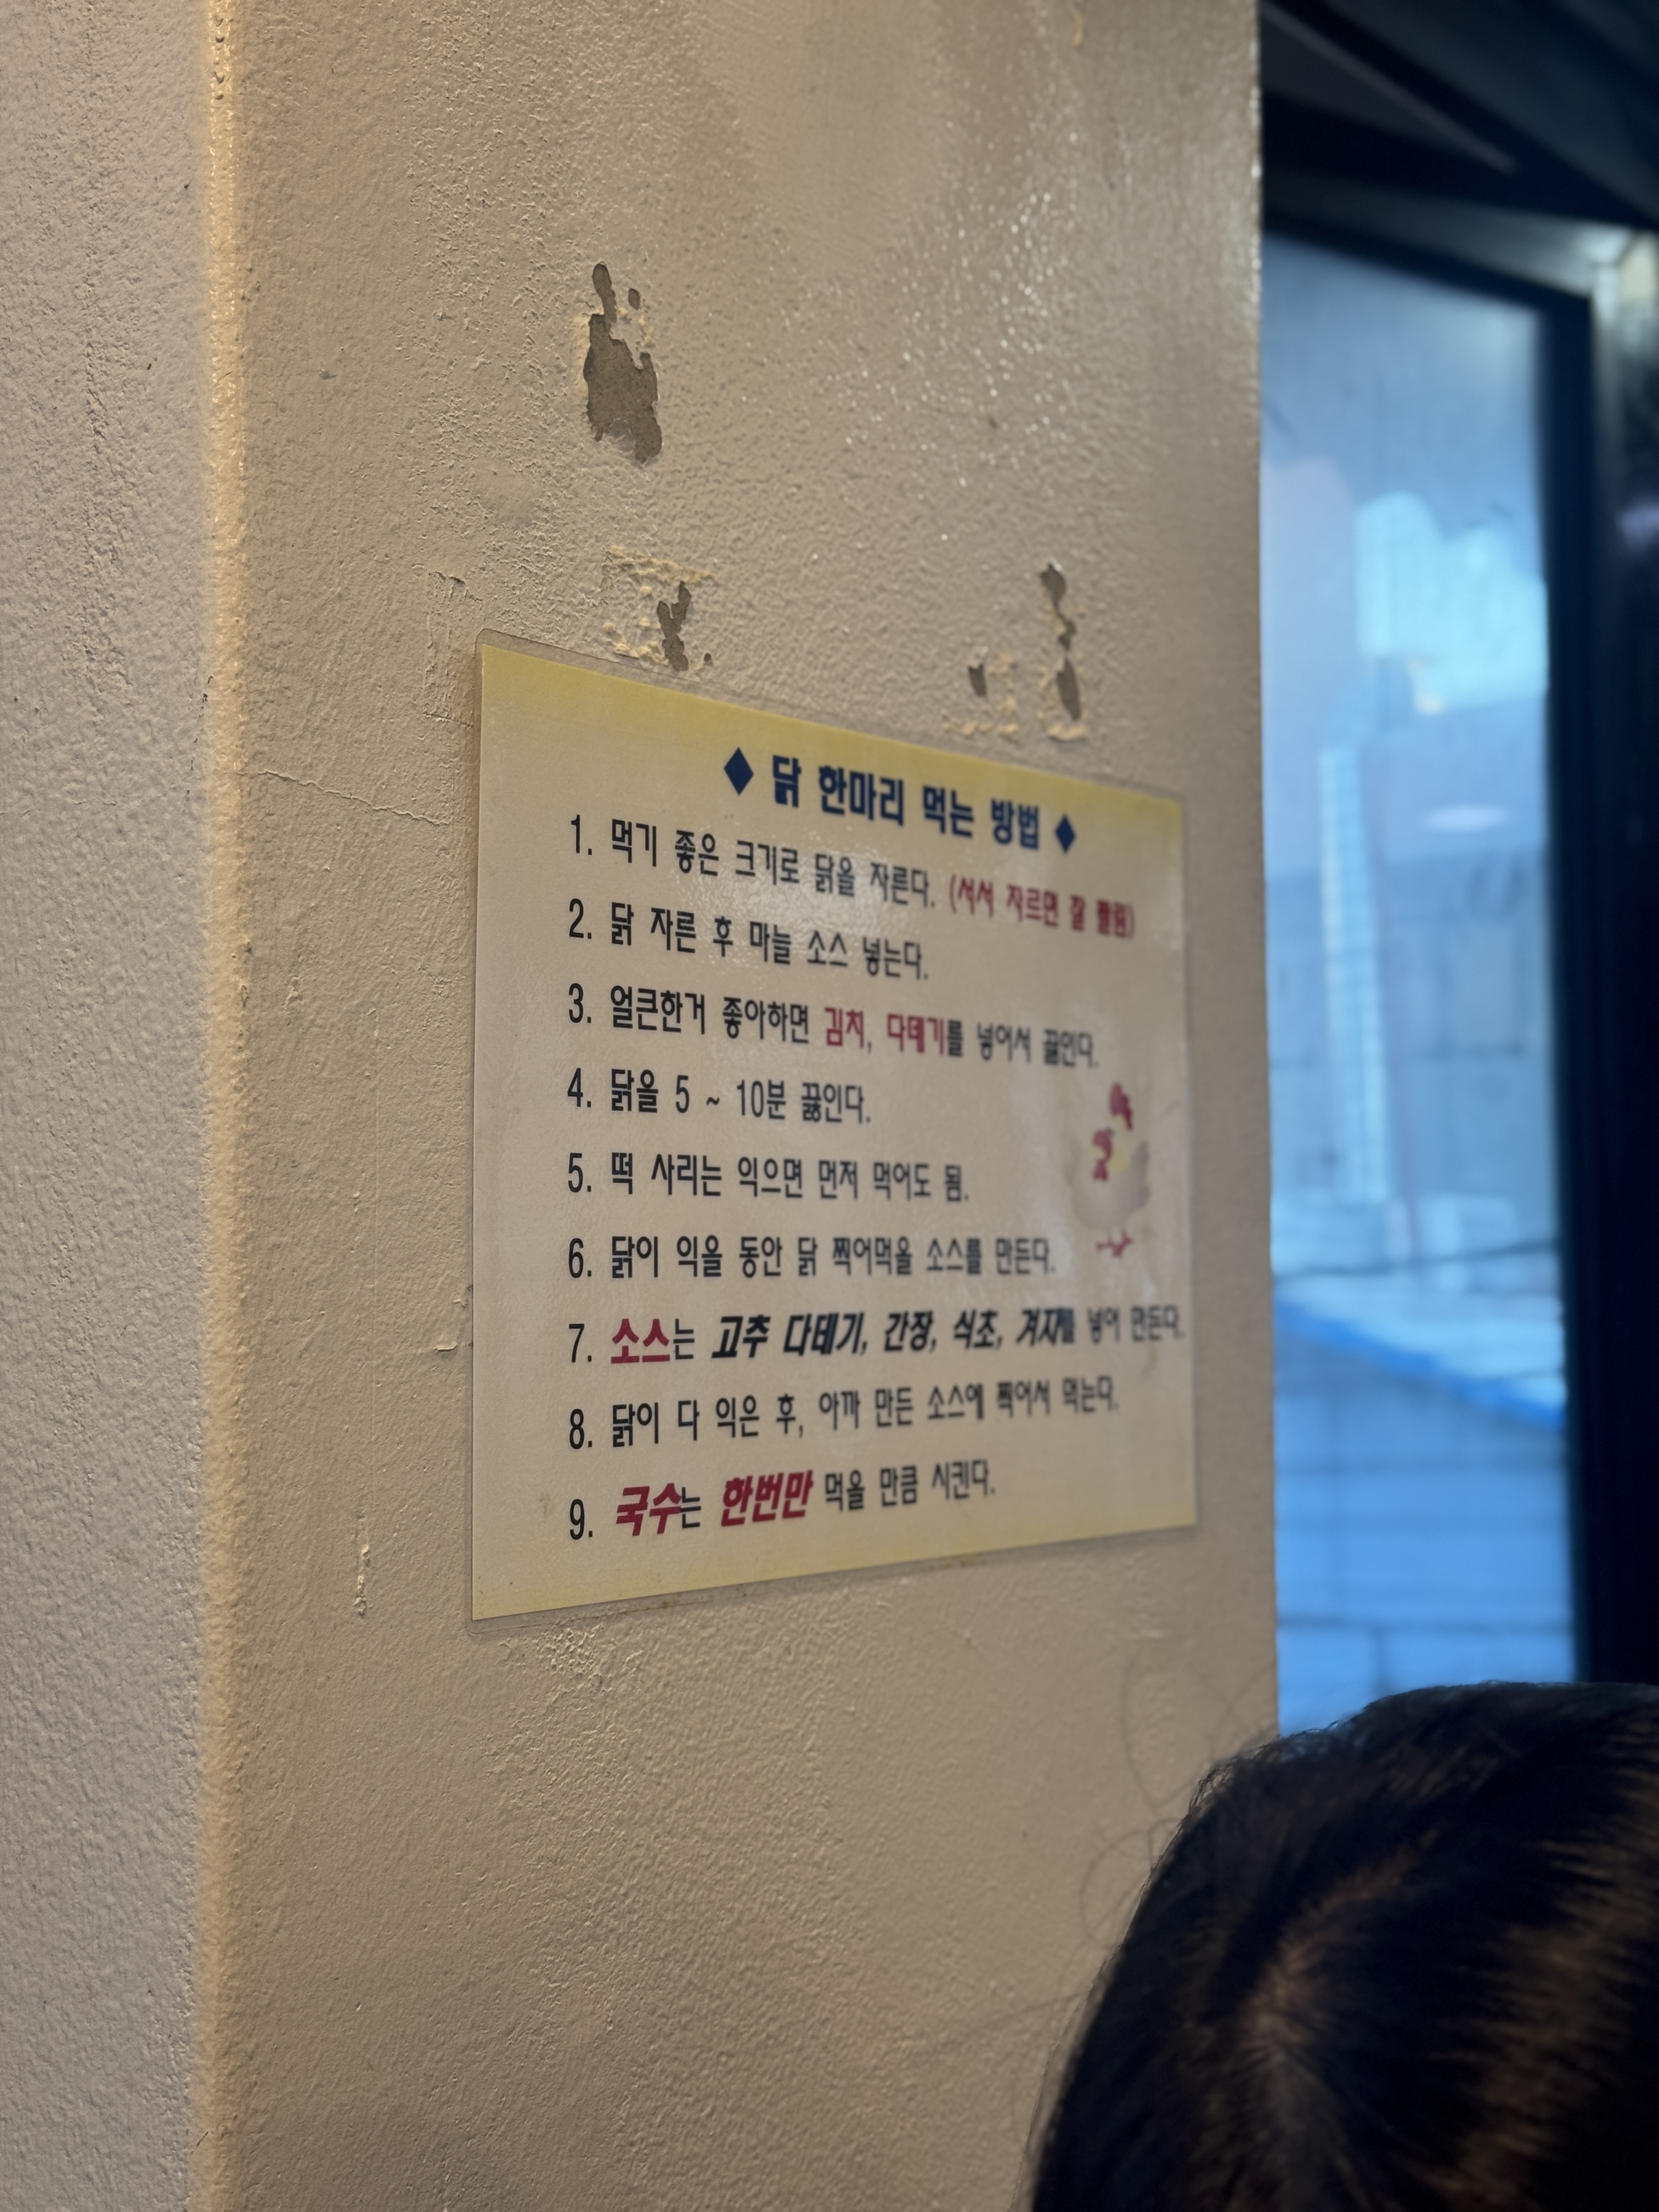 ◆ 닭 한마리 먹는 방법 ◆
1. 먹기 좋은 크기로 닭을 자른다. (서서 자르면 잘 짤림)
2. 닭 자른 후 마늘 소스 넣는다.
3. 얼큰한거 좋아하면 김치, 다테기를 넣어서 끓인다.
4. 닭을 5 ~ 10분 끓인다.
5. 떡 사리는 익으면 먼저 먹어도 됨.
6. 닭이 익을 동안 닭 찍어먹을 소스를 만든다.
7. 소스는 고추 다테기, 간장, 식초, 겨자를 넣어 만든다.
8. 닭이 다 익은 후, 아까 만든 소스에 찍어서 먹는다.
9. 국수는 한번만 먹을 만큼 시킨다.